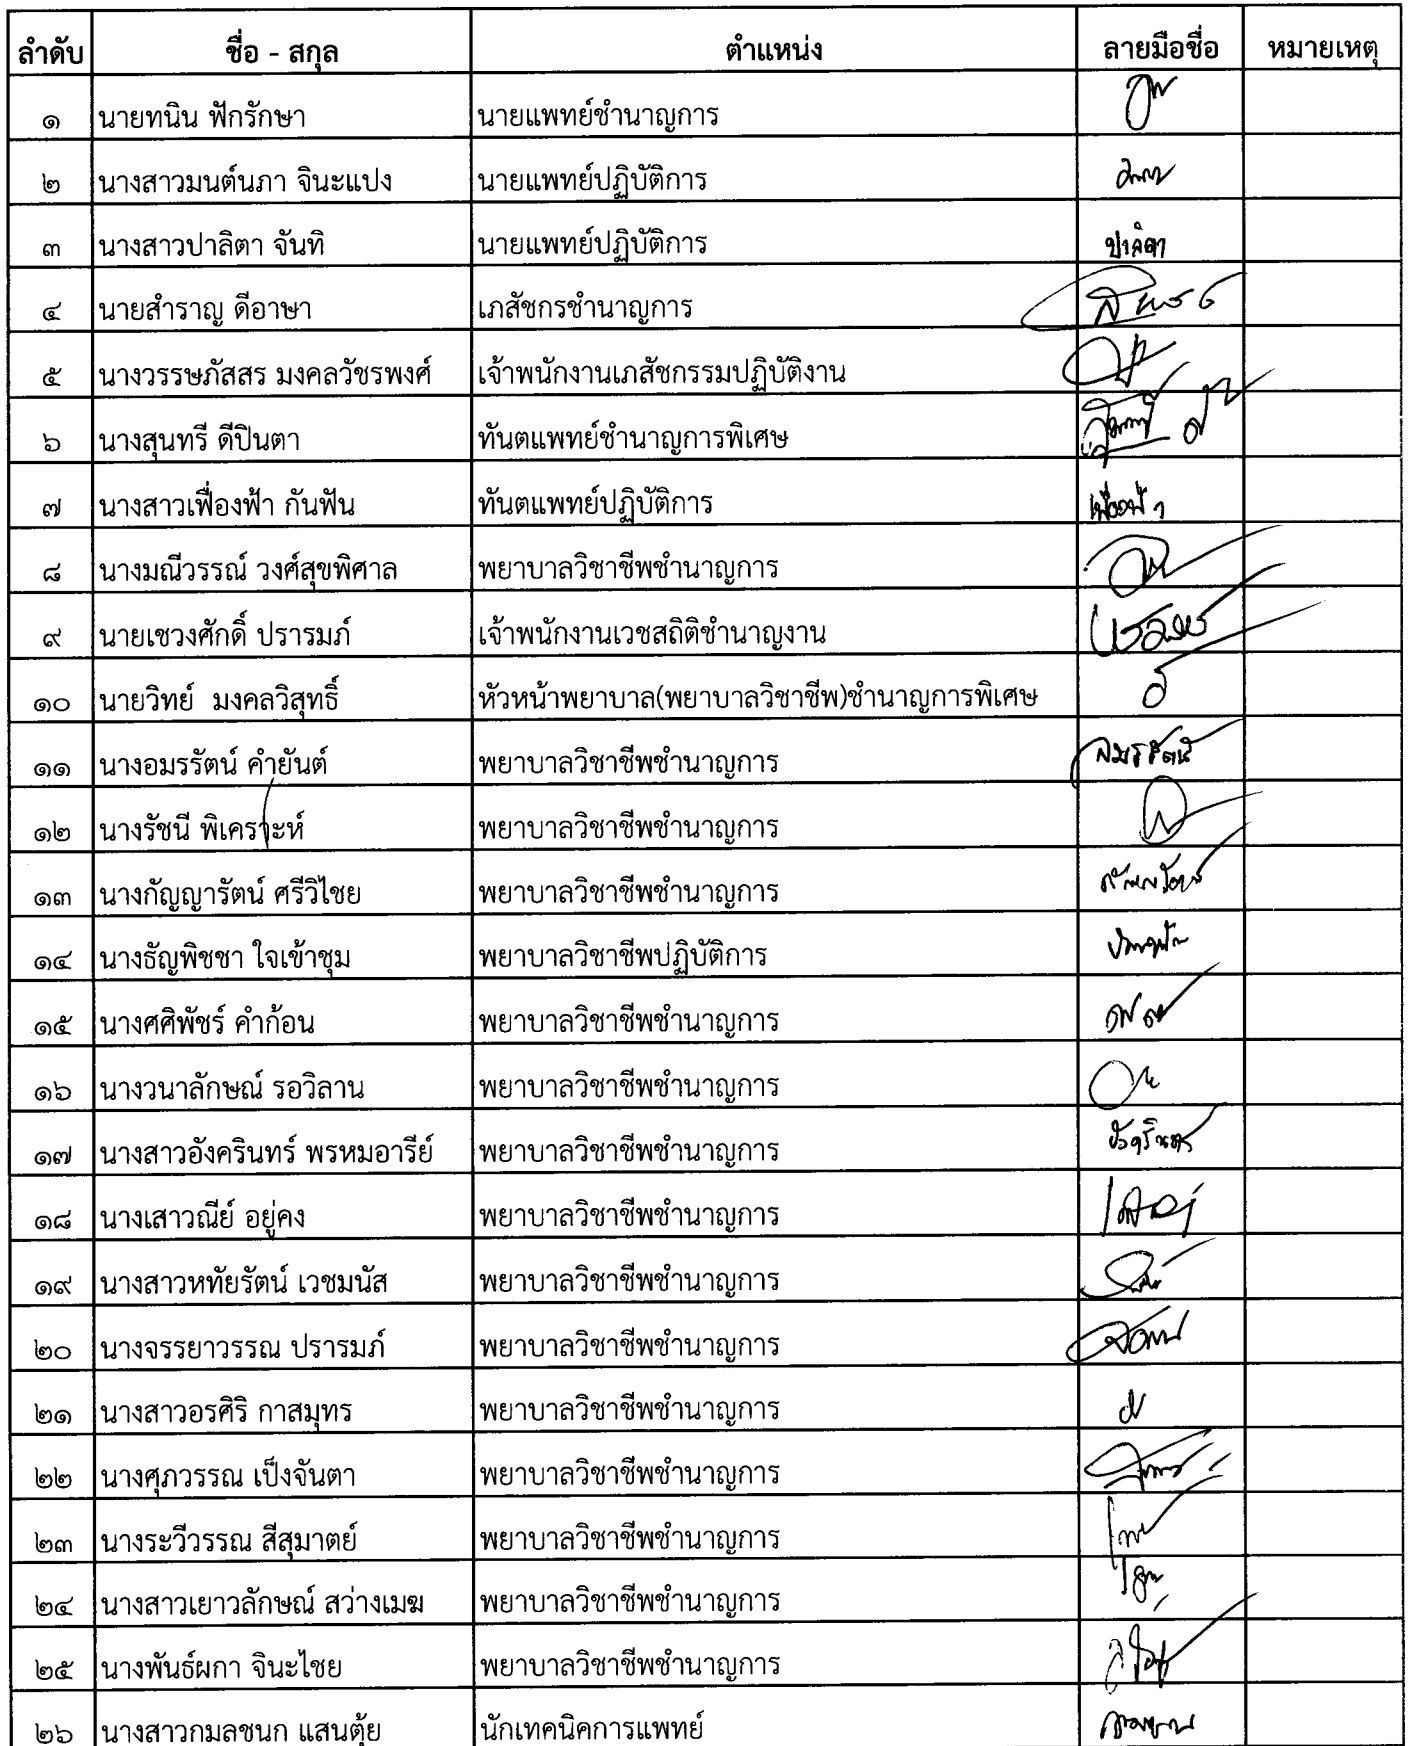 ลำดับ ชื่อ - สกุล ตำแหน่ง ลายมือชื่อ หมายเหตุ
๑ นายทนิน ฟักรักษา นายแพทย์ชำนาญการ
๒ นางสาวมนต์นภา จินะแปง นายแพทย์ปฏิบัติการ
๓ นางสาวปาลิตา จันทิ นายแพทย์ปฏิบัติการ ปาลิตา
๔ นายสำราญ ดีอาษา เภสัชกรชำนาญการ
๕ นางวรรษภัสสร มงคลวัชรพงศ์ เจ้าพนักงานเภสัชกรรมปฏิบัติงาน
๖ นางสุนทรี ดีปินตา ทันตแพทย์ชำนาญการพิเศษ
๗ นางสาวเฟื่องฟ้า กันฟัน ทันตแพทย์ปฏิบัติการ เฟื่องฟ้า
๘ นางมณีวรรณ์ วงศ์สุขพิศาล พยาบาลวิชาชีพชำนาญการ
๙ นายเชวงศักดิ์ ปรารมภ์ เจ้าพนักงานเวชสถิติชำนาญงาน
๑๐ นายวิทย์ มงคลวิสุทธิ์ หัวหน้าพยาบาล(พยาบาลวิชาชีพ)ชำนาญการพิเศษ
๑๑ นางอมรรัตน์ คำยันต์ พยาบาลวิชาชีพชำนาญการ อมรรัตน์
๑๒ นางรัชนี พิเคราะห์ พยาบาลวิชาชีพชำนาญการ
๑๓ นางกัญญารัตน์ ศรีวิไชย พยาบาลวิชาชีพชำนาญการ
๑๔ นางธัญพิชชา ใจเข้าชุม พยาบาลวิชาชีพปฏิบัติการ
๑๕ นางศศิพัชร์ คำก้อน พยาบาลวิชาชีพชำนาญการ
๑๖ นางวนาลักษณ์ รอวิลาน พยาบาลวิชาชีพชำนาญการ
๑๗ นางสาวอังครินทร์ พรหมอารีย์ พยาบาลวิชาชีพชำนาญการ
๑๘ นางเสาวณีย์ อยู่คง พยาบาลวิชาชีพชำนาญการ
๑๙ นางสาวหทัยรัตน์ เวชมนัส พยาบาลวิชาชีพชำนาญการ
๒๐ นางจรรยาวรรณ ปรารมภ์ พยาบาลวิชาชีพชำนาญการ
๒๑ นางสาวอรศิริ กาสมุทร พยาบาลวิชาชีพชำนาญการ
๒๒ นางศุภวรรณ เป็งจันตา พยาบาลวิชาชีพชำนาญการ
๒๓ นางระวีวรรณ สีสุมาตย์ พยาบาลวิชาชีพชำนาญการ
๒๔ นางสาวเยาวลักษณ์ สว่างเมฆ พยาบาลวิชาชีพชำนาญการ
๒๕ นางพันธ์ผกา จินะไชย พยาบาลวิชาชีพชำนาญการ
๒๖ นางสาวกมลชนก แสนตุ้ย นักเทคนิคการแพทย์